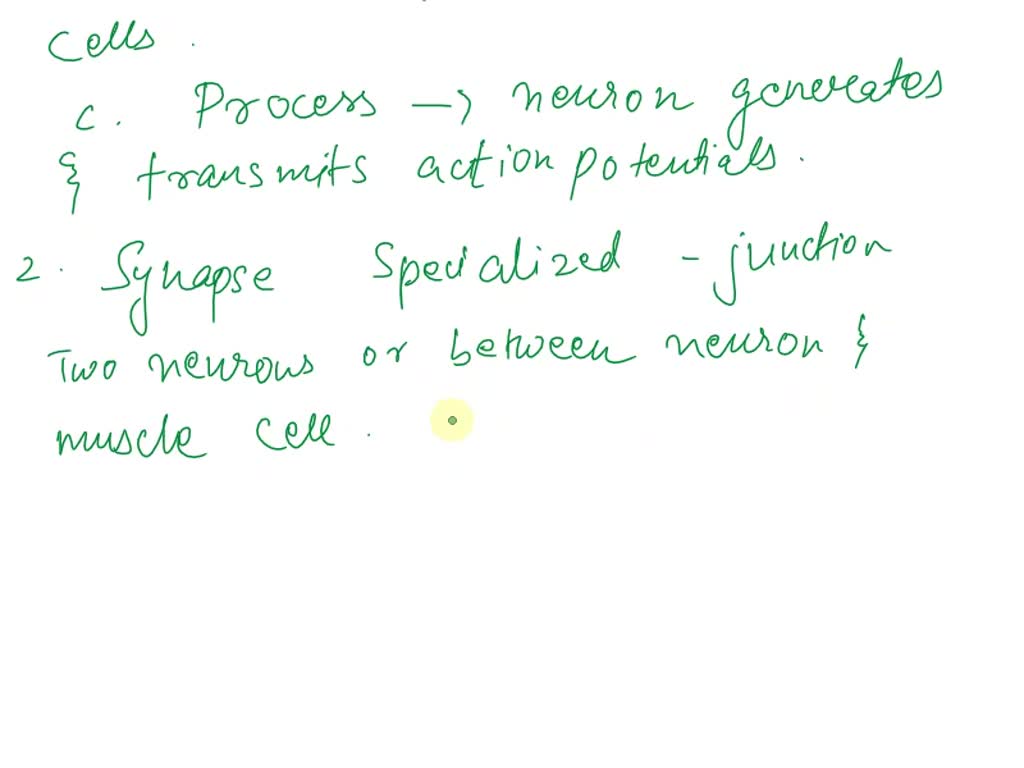 Cells .
c . Process → neuron generates
& transmits action potentials .
2 . Synapse Specialized - junction
Two neurons or between neuron &
muscle cell .